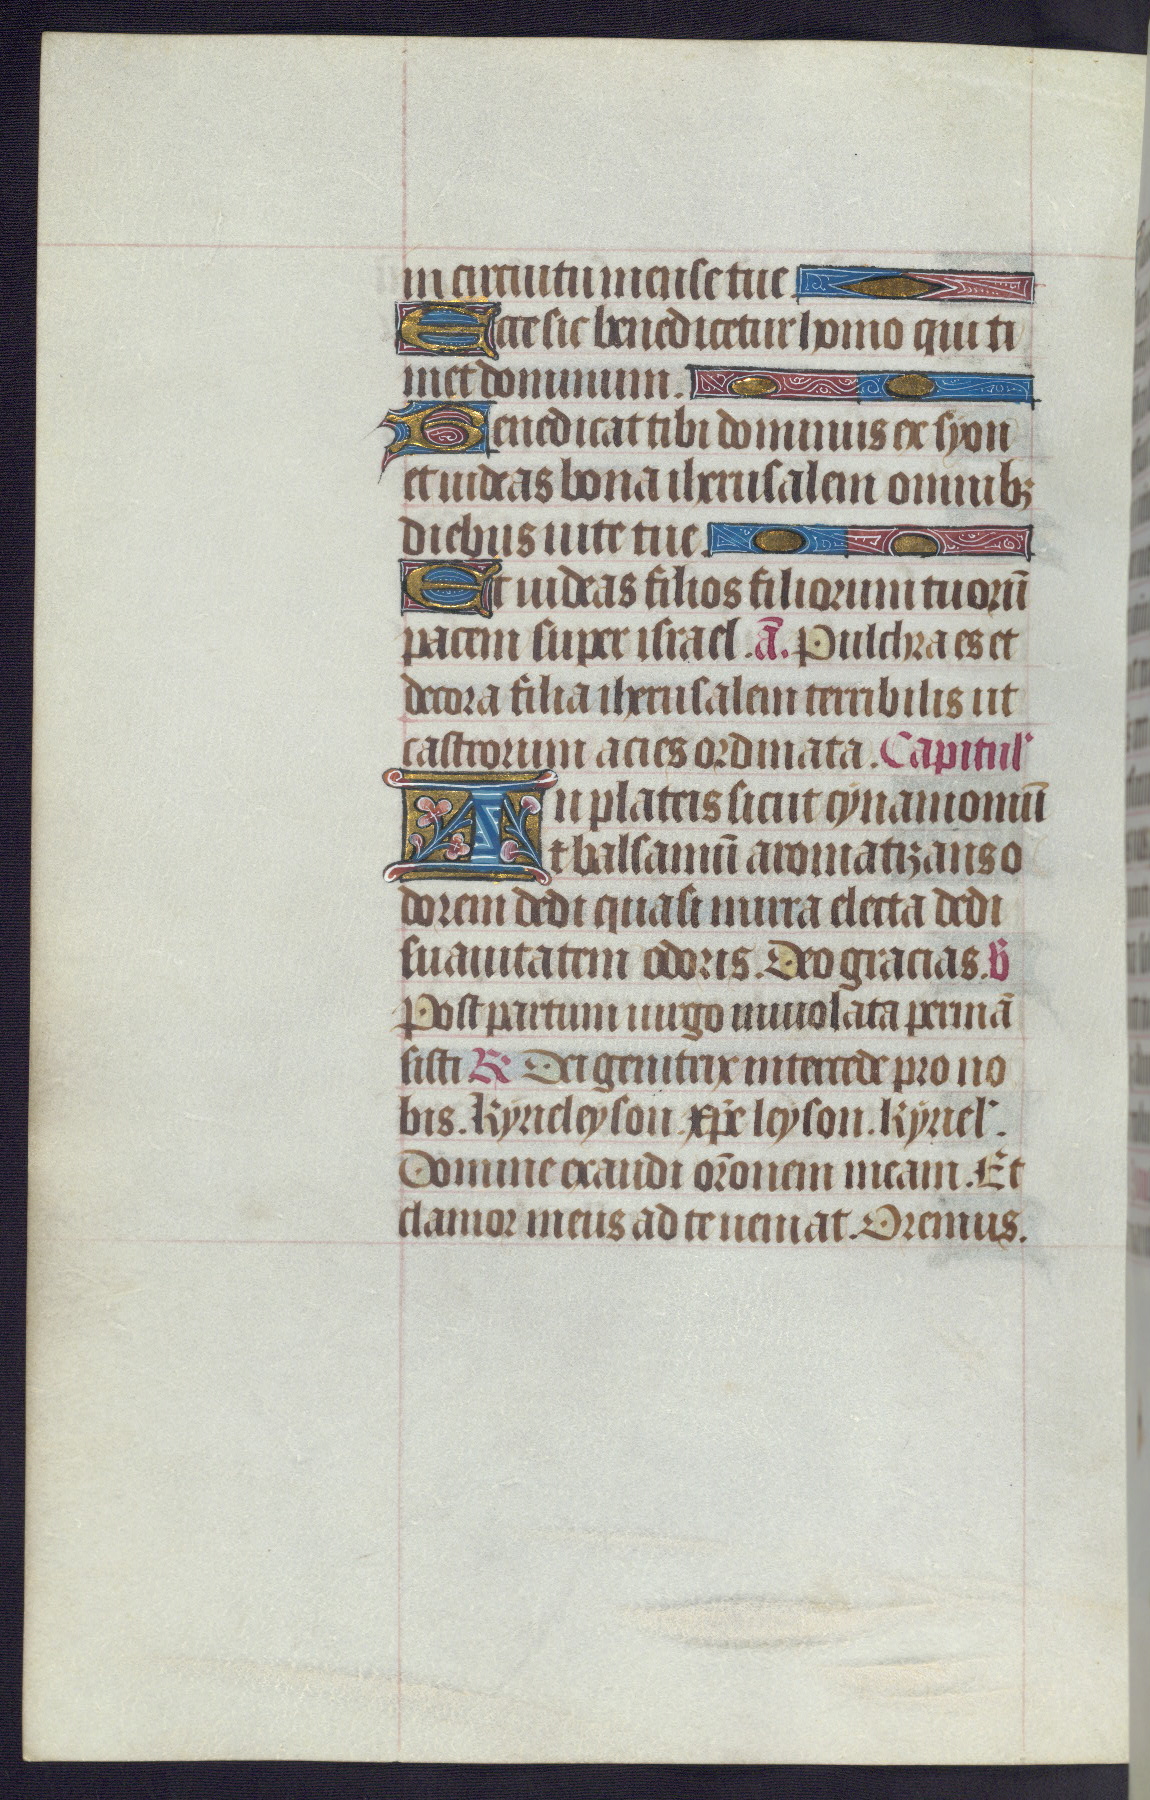 in circuitu mense tue
Ecce sic benedicetur homo qui ti
met dominum.
Benedicat tibi dominus ex syon
et uideas bona iherusalem omnibꝫ
diebus uite tue.
Et uideas filios filiorum tuorū
pacem super israel. ā. Pulchra es et
decora filia iherusalem terribilis ut
castrorum acies ordinata. Capitul'
In plateis sicut cynamomū
et balsamū aromatizans o
dorem dedi quasi mirra electa dedi
suauitatem odoris. Deo gracias. v̄
Post partum uirgo inuiolata permā
sisti R̷ Dei genitrix intercede pro no
bis. Kyrieleyson. xp̄e leyson. Kyriel'.
Domine exaudi or̄onem meam. Et
clamor meus ad te ueniat. Oremus.